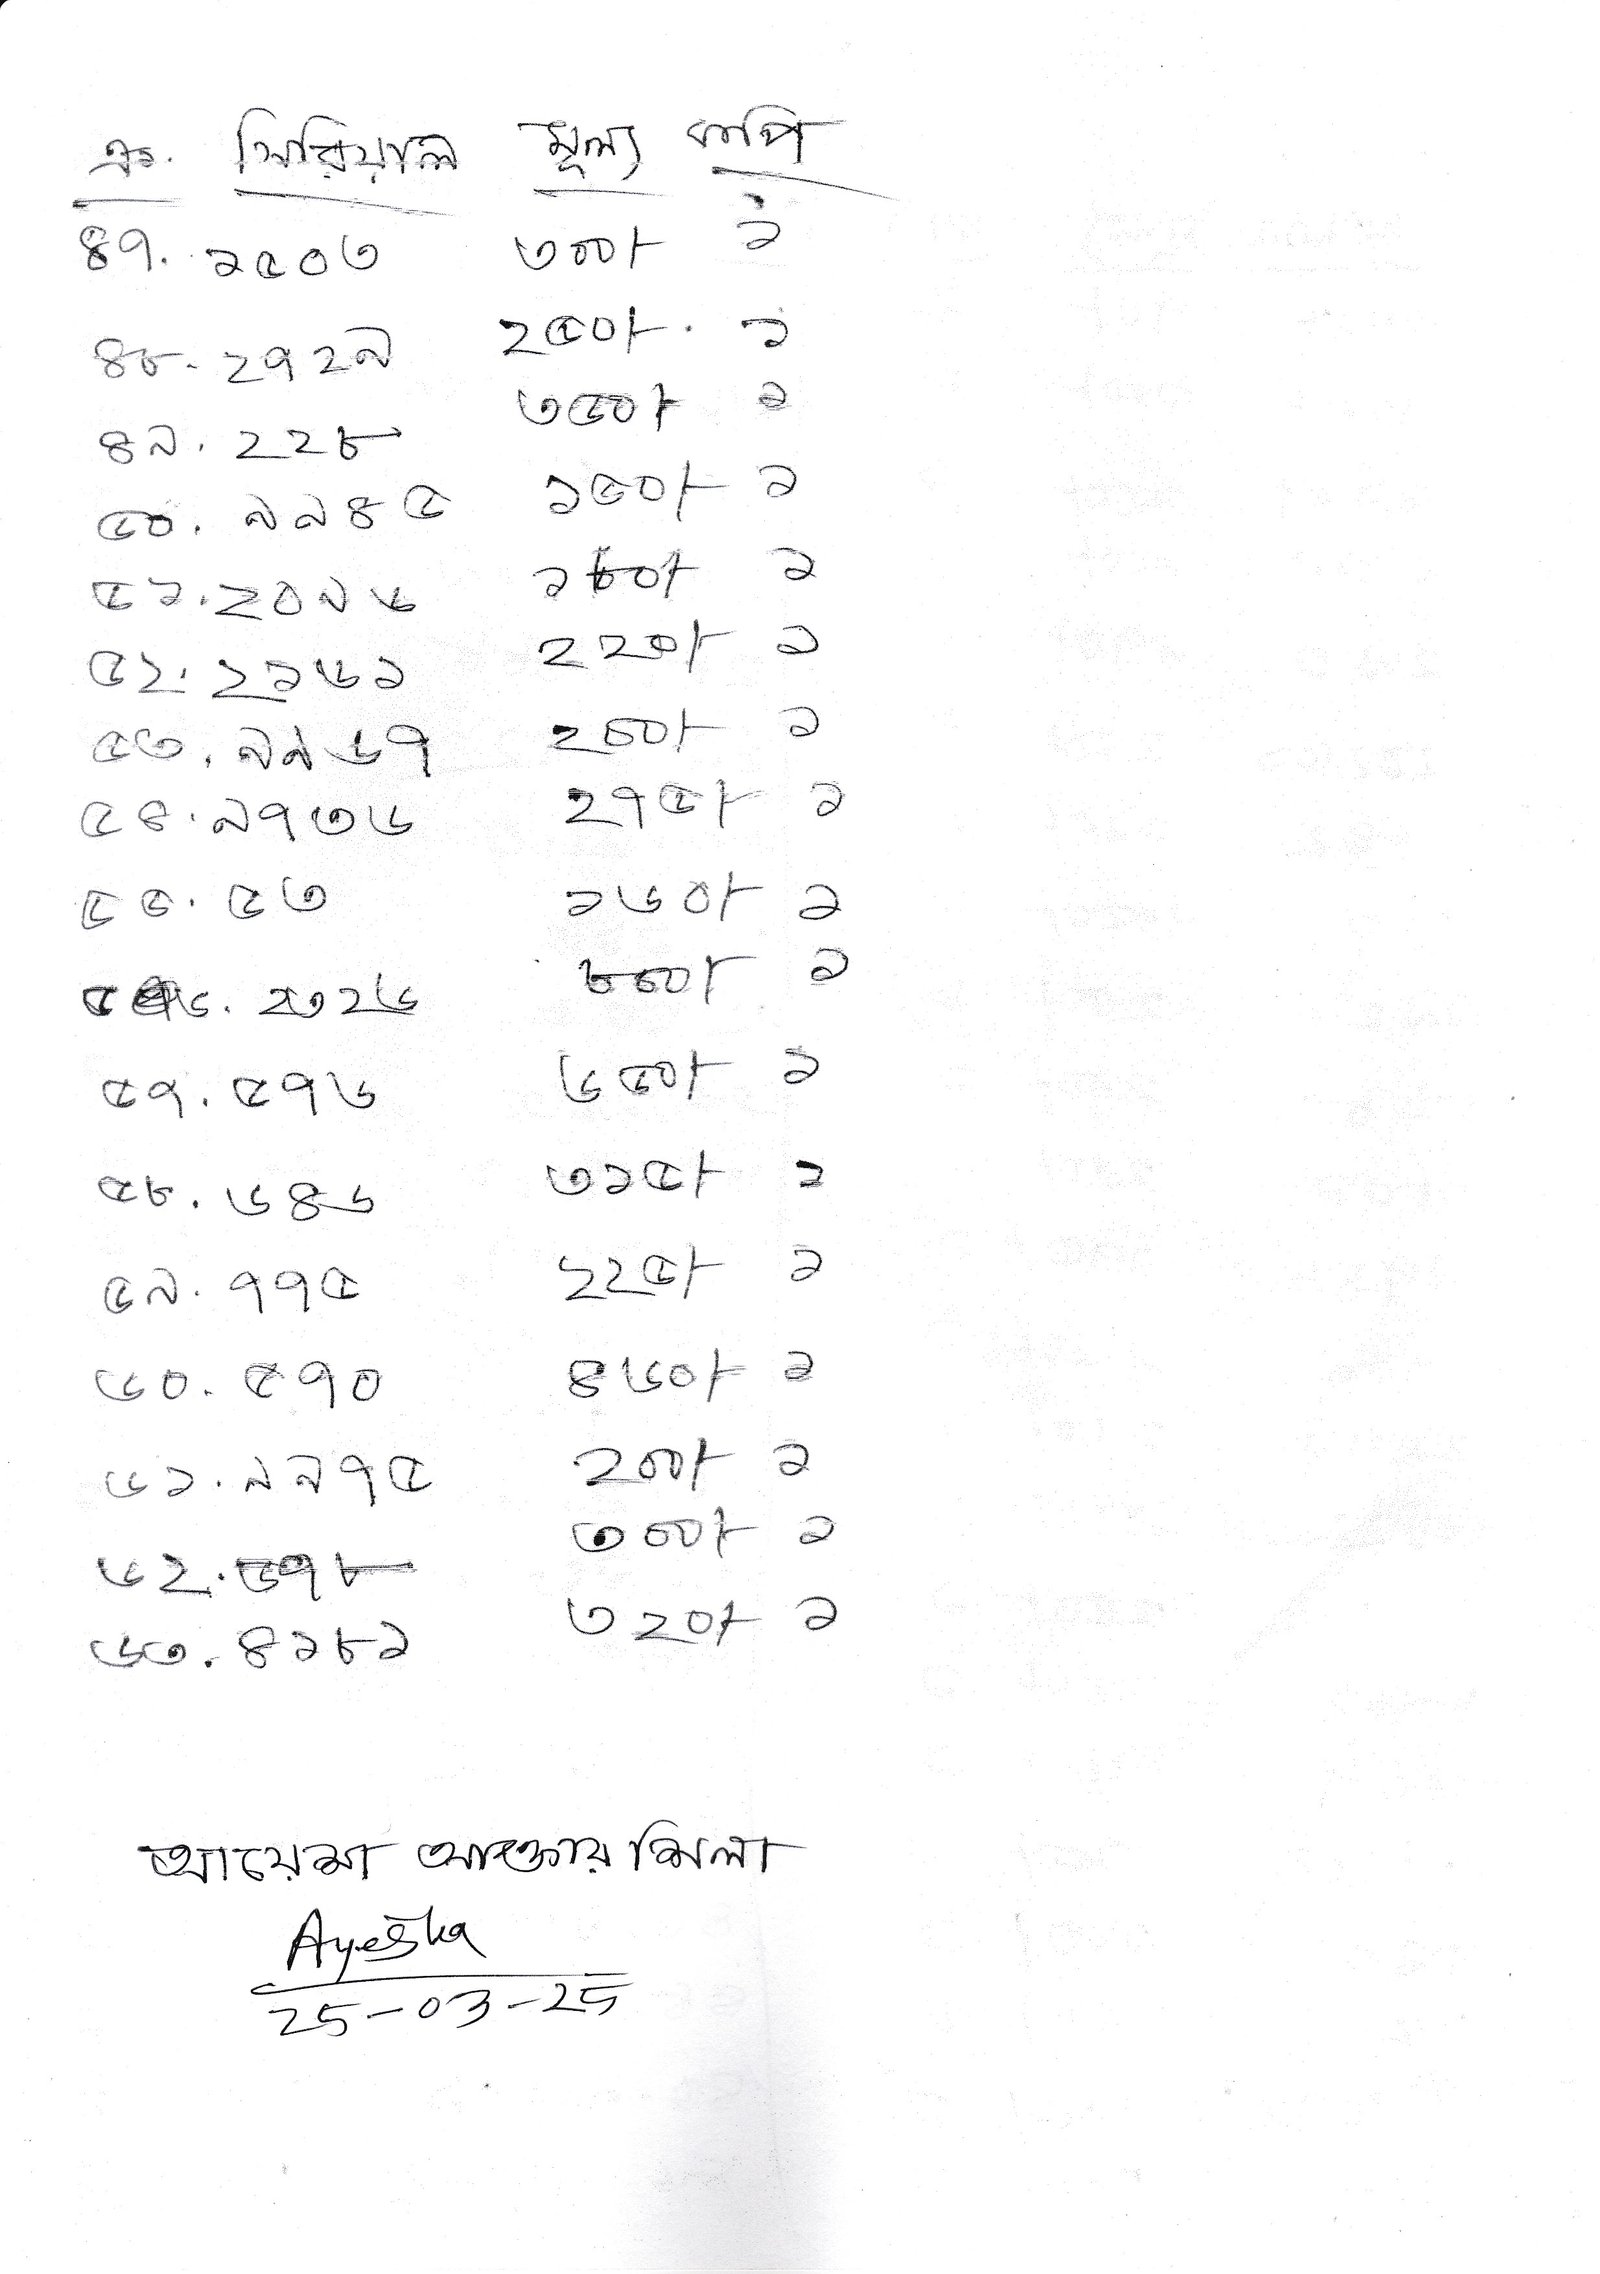 ক্র. সিরিয়াল মূল্য কপি
৪৭. ১৫০৩ ৩০০/- ১
৪৮. ২৭২৯ ২৫০/- ১
৪৯. ২২৮ ৩৫০/- ১
৫০. ৯৯৪৫ ১৫০/- ১
৫১. ২০৯৬ ১৮০/- ১
৫২. ২১৬১ ২২০/- ১
৫৩. ৯৯৬৭ ২৫০/- ১
৫৪. ৯৭৩৬ ২৭৫/- ১
৫৫. ৫৩ ১৬০/- ১
৫৬. ২৩২৬ ৮৫০/- ১
৫৭. ৫৭৬ ৬৫০/- ১
৫৮. ৬৪৬ ৩১৫/- ১
৫৯. ৭৭৫ ২২৫/- ১
৬০. ৫৭০ ৪৬০/- ১
৬১. ৯৯৭৫ ২০০/- ১
৬২. ৬৭৮ ৩৫০/- ১
৬৩. ৪১৮১ ৩২০/- ১
আয়েশা আক্তার মিলা
Ayesha
25-03-25